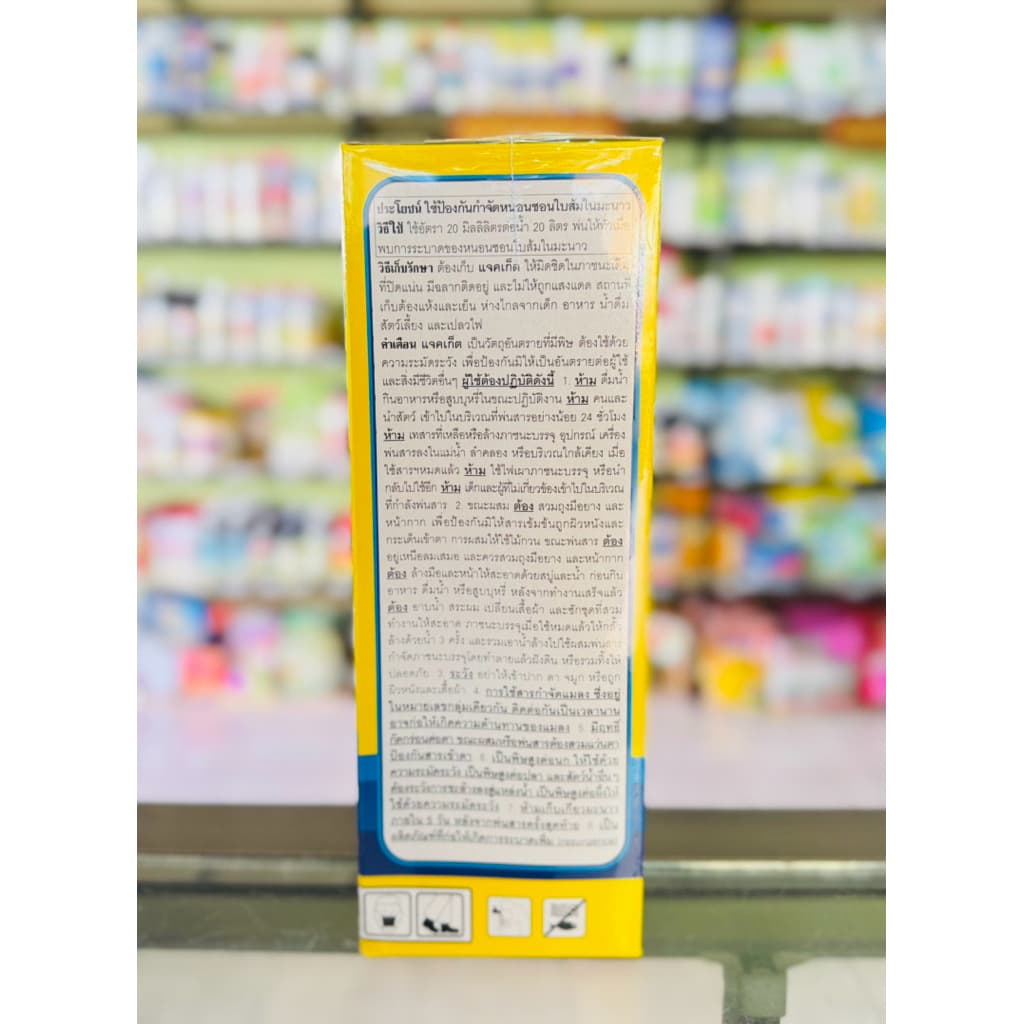 ประโยชน์ ใช้ป้องกันกำจัดหนอนชอนใบส้มในมะนาว
วิธีใช้ ใช้อัตรา 20 มิลลิลิตรต่อน้ำ 20 ลิตร พ่นให้ทั่วเมื่อ
พบการระบาดของหนอนชอนใบส้มในมะนาว
วิธีเก็บรักษา ต้องเก็บ แจคเก็ต ให้มิดชิดในภาชนะเดิม
ที่ปิดแน่น มีฉลากติดอยู่ และไม่ให้ถูกแสงแดด สถานที่
เก็บต้องแห้งและเย็น ห่างไกลจากเด็ก อาหาร น้ำดื่ม
สัตว์เลี้ยง และเปลวไฟ
คำเตือน แจคเก็ต เป็นวัตถุอันตรายที่มีพิษ ต้องใช้ด้วย
ความระมัดระวัง เพื่อป้องกันมิให้เป็นอันตรายต่อผู้ใช้
และสิ่งมีชีวิตอื่นๆ ผู้ใช้ต้องปฏิบัติดังนี้ 1. ห้าม ดื่มน้ำ
กินอาหารหรือสูบบุหรี่ในขณะปฏิบัติงาน ห้าม คนและ
นำสัตว์ เข้าไปในบริเวณที่พ่นสารอย่างน้อย 24 ชั่วโมง
ห้าม เทสารที่เหลือหรือล้างภาชนะบรรจุ อุปกรณ์ เครื่อง
พ่นสารลงในแม่น้ำ ลำคลอง หรือบริเวณใกล้เคียง เมื่อ
ใช้สารฯหมดแล้ว ห้าม ใช้ไฟเผาภาชนะบรรจุ หรือนำ
กลับไปใช้อีก ห้าม เด็กและผู้ที่ไม่เกี่ยวข้องเข้าไปในบริเวณ
ที่กำลังพ่นสาร 2. ขณะผสม ต้อง สวมถุงมือยาง และ
หน้ากาก เพื่อป้องกันมิให้สารเข้มข้นถูกผิวหนังและ
กระเด็นเข้าตา การผสมให้ใช้ไม้กวน ขณะพ่นสาร ต้อง
อยู่เหนือลมเสมอ และควรสวมถุงมือยาง และหน้ากาก
ต้อง ล้างมือและหน้าให้สะอาดด้วยสบู่และน้ำ ก่อนกิน
อาหาร ดื่มน้ำ หรือสูบบุหรี่ หลังจากทำงานเสร็จแล้ว
ต้อง อาบน้ำ สระผม เปลี่ยนเสื้อผ้า และซักชุดที่สวม
ทำงานให้สะอาด ภาชนะบรรจุเมื่อใช้หมดแล้วให้กลั้ว
ล้างด้วยน้ำ 3 ครั้ง และรวมเอาน้ำล้างไปใช้ผสมพ่นสาร
กำจัดภาชนะบรรจุโดยทำลายแล้วฝังดิน หรือรวมทิ้งให้
ปลอดภัย 3. ระวัง อย่าให้เข้าปาก ตา จมูก หรือถูก
ผิวหนังและเสื้อผ้า 4. การใช้สารกำจัดแมลง ซึ่งอยู่
ในหมายเลขกลุ่มเดียวกัน ติดต่อกันเป็นเวลานาน
อาจก่อให้เกิดความต้านทานของแมลง 5. มีฤทธิ์
กัดกร่อนต่อตา ขณะผสมหรือพ่นสารต้องสวมแว่นตา
ป้องกันสารเข้าตา 6. เป็นพิษสูงต่อนก ให้ใช้ด้วย
ความระมัดระวัง เป็นพิษสูงต่อปลา และสัตว์น้ำอื่นๆ
ต้องระวังการชะล้างลงสู่แหล่งน้ำ เป็นพิษสูงต่อผึ้งให้
ใช้ด้วยความระมัดระวัง 7. ห้ามเก็บเกี่ยวมะนาว
ภายใน 5 วัน หลังจากพ่นสารครั้งสุดท้าย 8. เป็น
ผลิตภัณฑ์ที่ก่อให้เกิดการระบาดเพิ่ม